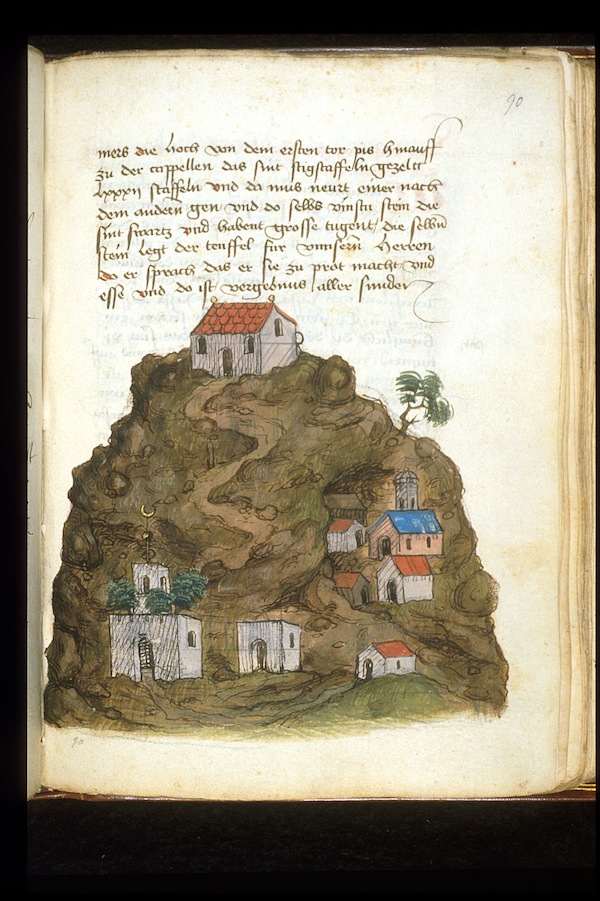 90
mers die hoch von dem ersten tor pis hinauff
zu der cappellen das sint stigstaffeln gezellt
lxxxii staffeln vnd da mus neurt einer nach
dem andern gen vnd do selbs vinstu stein die
sint swartz vnd habent grosse tugent die selbn
stein legt der teuffel fur vnnsern herren
do er sprach das er sie zu prot macht vnd
esse vnd do ist vergebnus aller sunder
90